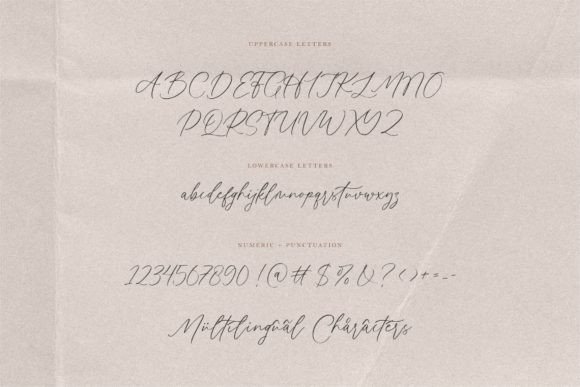 UPPERCASE LETTERS
ABCDEFGHIJKLMNO
PQRSTUVWXYZ
LOWERCASE LETTERS
abcdefghijklmnopqrstuvwxyz
NUMERIC + PUNCTUATION
1234567890 !@#$%&?()+=_-
Mültilingüãl Chåràctèrs